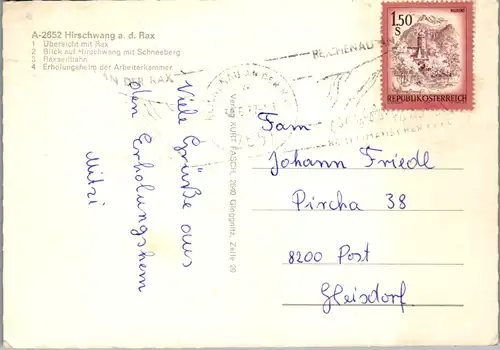 A-2652 Hirschwang a. d. Rax
1 Übersicht mit Rax
2 Blick auf Hirschwang mit Schneeberg
3 Raxseilbahn
4 Erholungsheim der Arbeiterkammer
AN DER RAX
REICHENAU AN
1.50
S
REPUBLIK ÖSTERREICH
Viele Grüße aus
den Erholungsheim
Mitzi
Verlag KURT FASCH, 2640 Gloggnitz, Zeile 20
Fam
Johann Friedl
Pircha 38
8200 Post
Gleisdorf